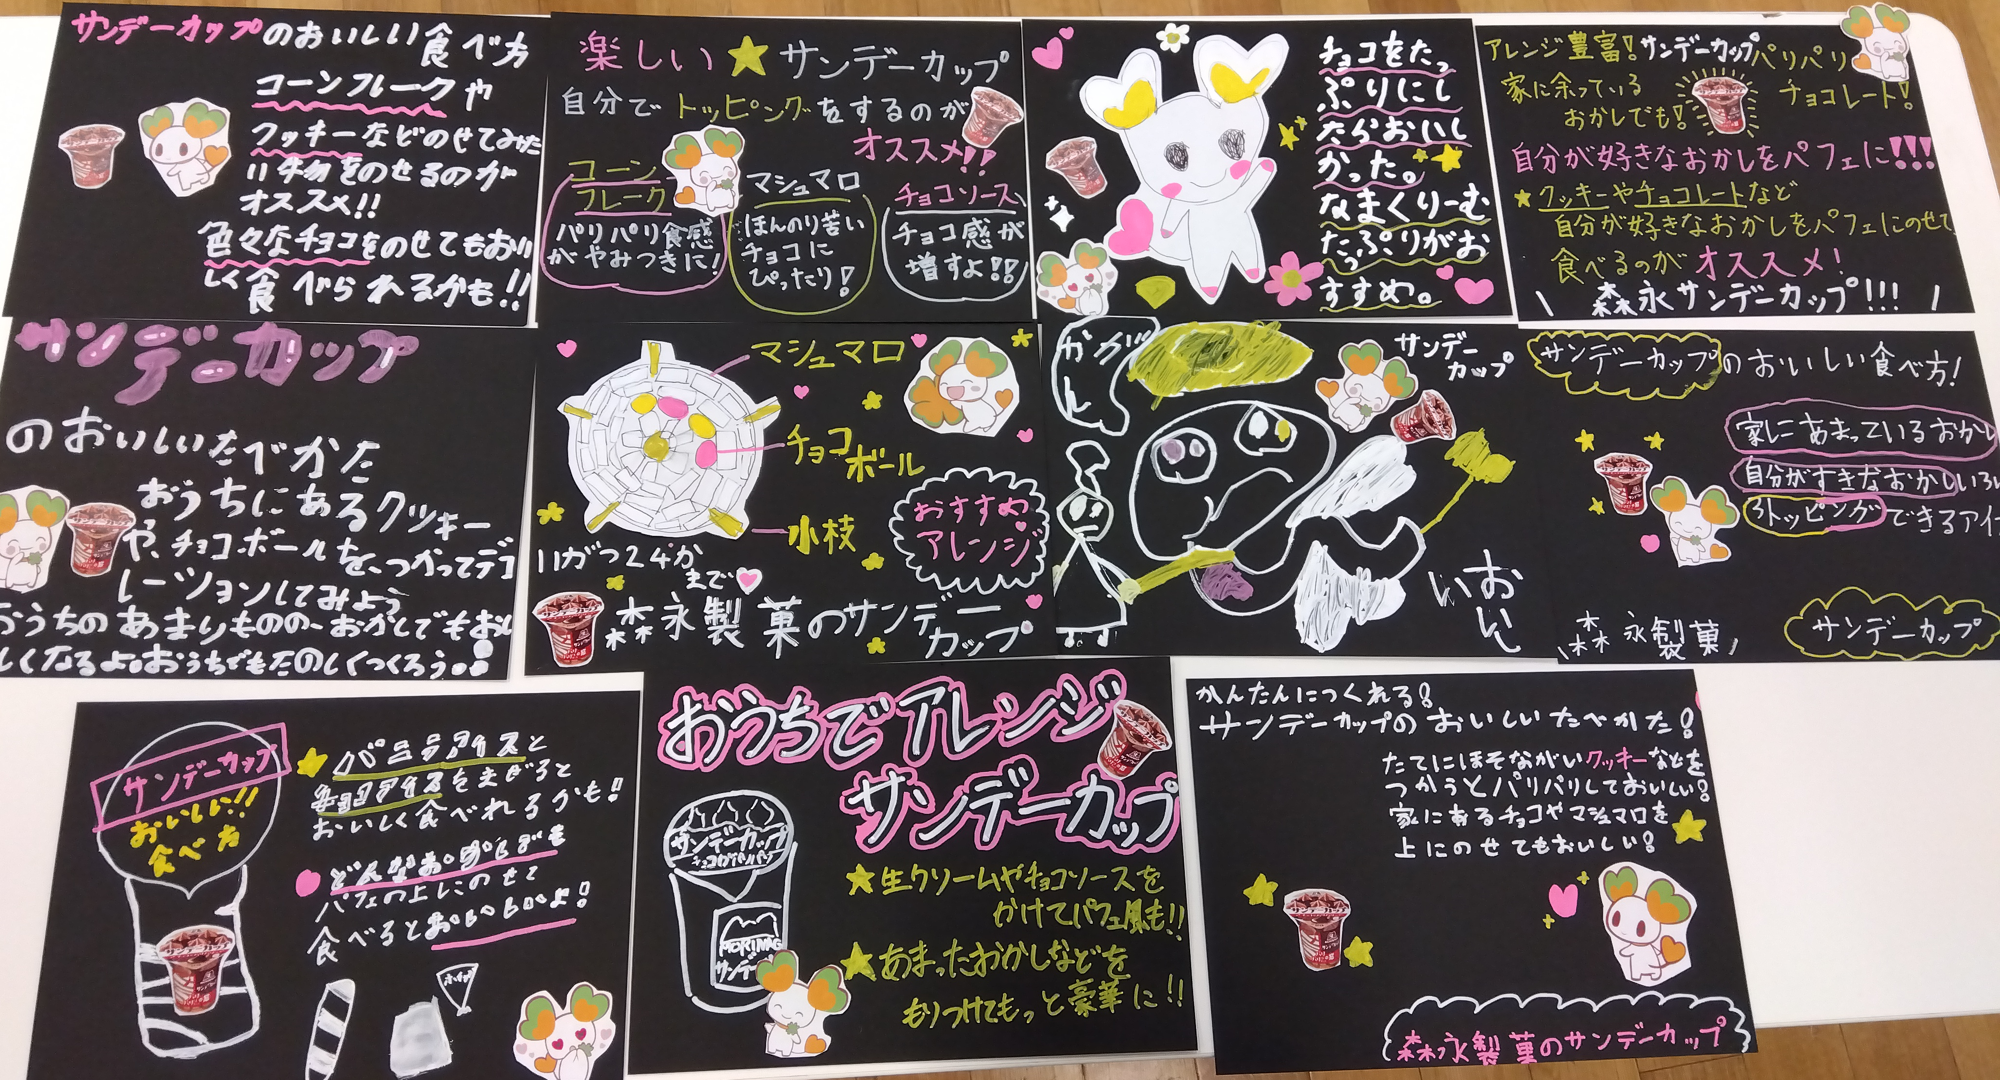 サンデーカップのおいしい食べ方
コーンフレークや
クッキーなどのせてみた
り物をのせるのが
オススメ!!
色々なチョコをのせてもおい
しく食べられるかも!!
楽しい★サンデーカップ
自分でトッピングをするのが
オススメ!!
コーン
フレーク
パリパリ食感
がやみつきに!
マシュマロ
ほんのり苦い
チョコに
ぴったり!
チョコソース
チョコ感が
増すよ!!
チョコをたっ
ぷりにし
たらおいし
かった。
なまくりーむ
たっぷりがお
すすめ。
アレンジ豊富!サンデーカップパリパリ
チョコレート!
家に余っている
おかしでも!
自分が好きなおかしをパフェに!!!
★クッキーやチョコレートなど
自分が好きなおかしをパフェにのせて
食べるのがオススメ!
\ 森永サンデーカップ!!! /
サンデーカップ
のおいしいたべかた
おうちにあるクッキー
や、チョコボールを、つかってデコ
レーションしてみよう
おうちのあまりものの、おかしでもおい
しくなるよ。おうちでもたのしくつくろう。!
マシュマロ
チョコ
ボール
小枝
おすすめ
アレンジ
11がつ24か
まで
森永製菓のサンデー
カップ
サンデー
カップ
おいし
い
サンデーカップのおいしい食べ方!
家にあまっているおかし
自分がすきなおかしいろい
ろトッピングできるアイ
\森永製菓/
サンデーカップ
サンデーカップ
おいしい!!
食べ方
バニラアイスと
チョコアイスをまぜると
おいしく食べれるかも!!
どんなおかしでも
パフェの上にのせて
食べるとおいしいよ!
ホイップ
おうちでアレンジ
サンデーカップ
サンデーカップ
MORINAG
サンデー
★生クリームやチョコソースを
かけてパフェ風も!!
★あまったおかしなどを
もりつけてもっと豪華に!!
かんたんにつくれる!
サンデーカップのおいしいたべかた!
たてにほそながいクッキーなどを
つかうとパリパリしておいしい!
家にあるチョコやマシュマロを
上にのせてもおいしい!
森永製菓のサンデーカップ